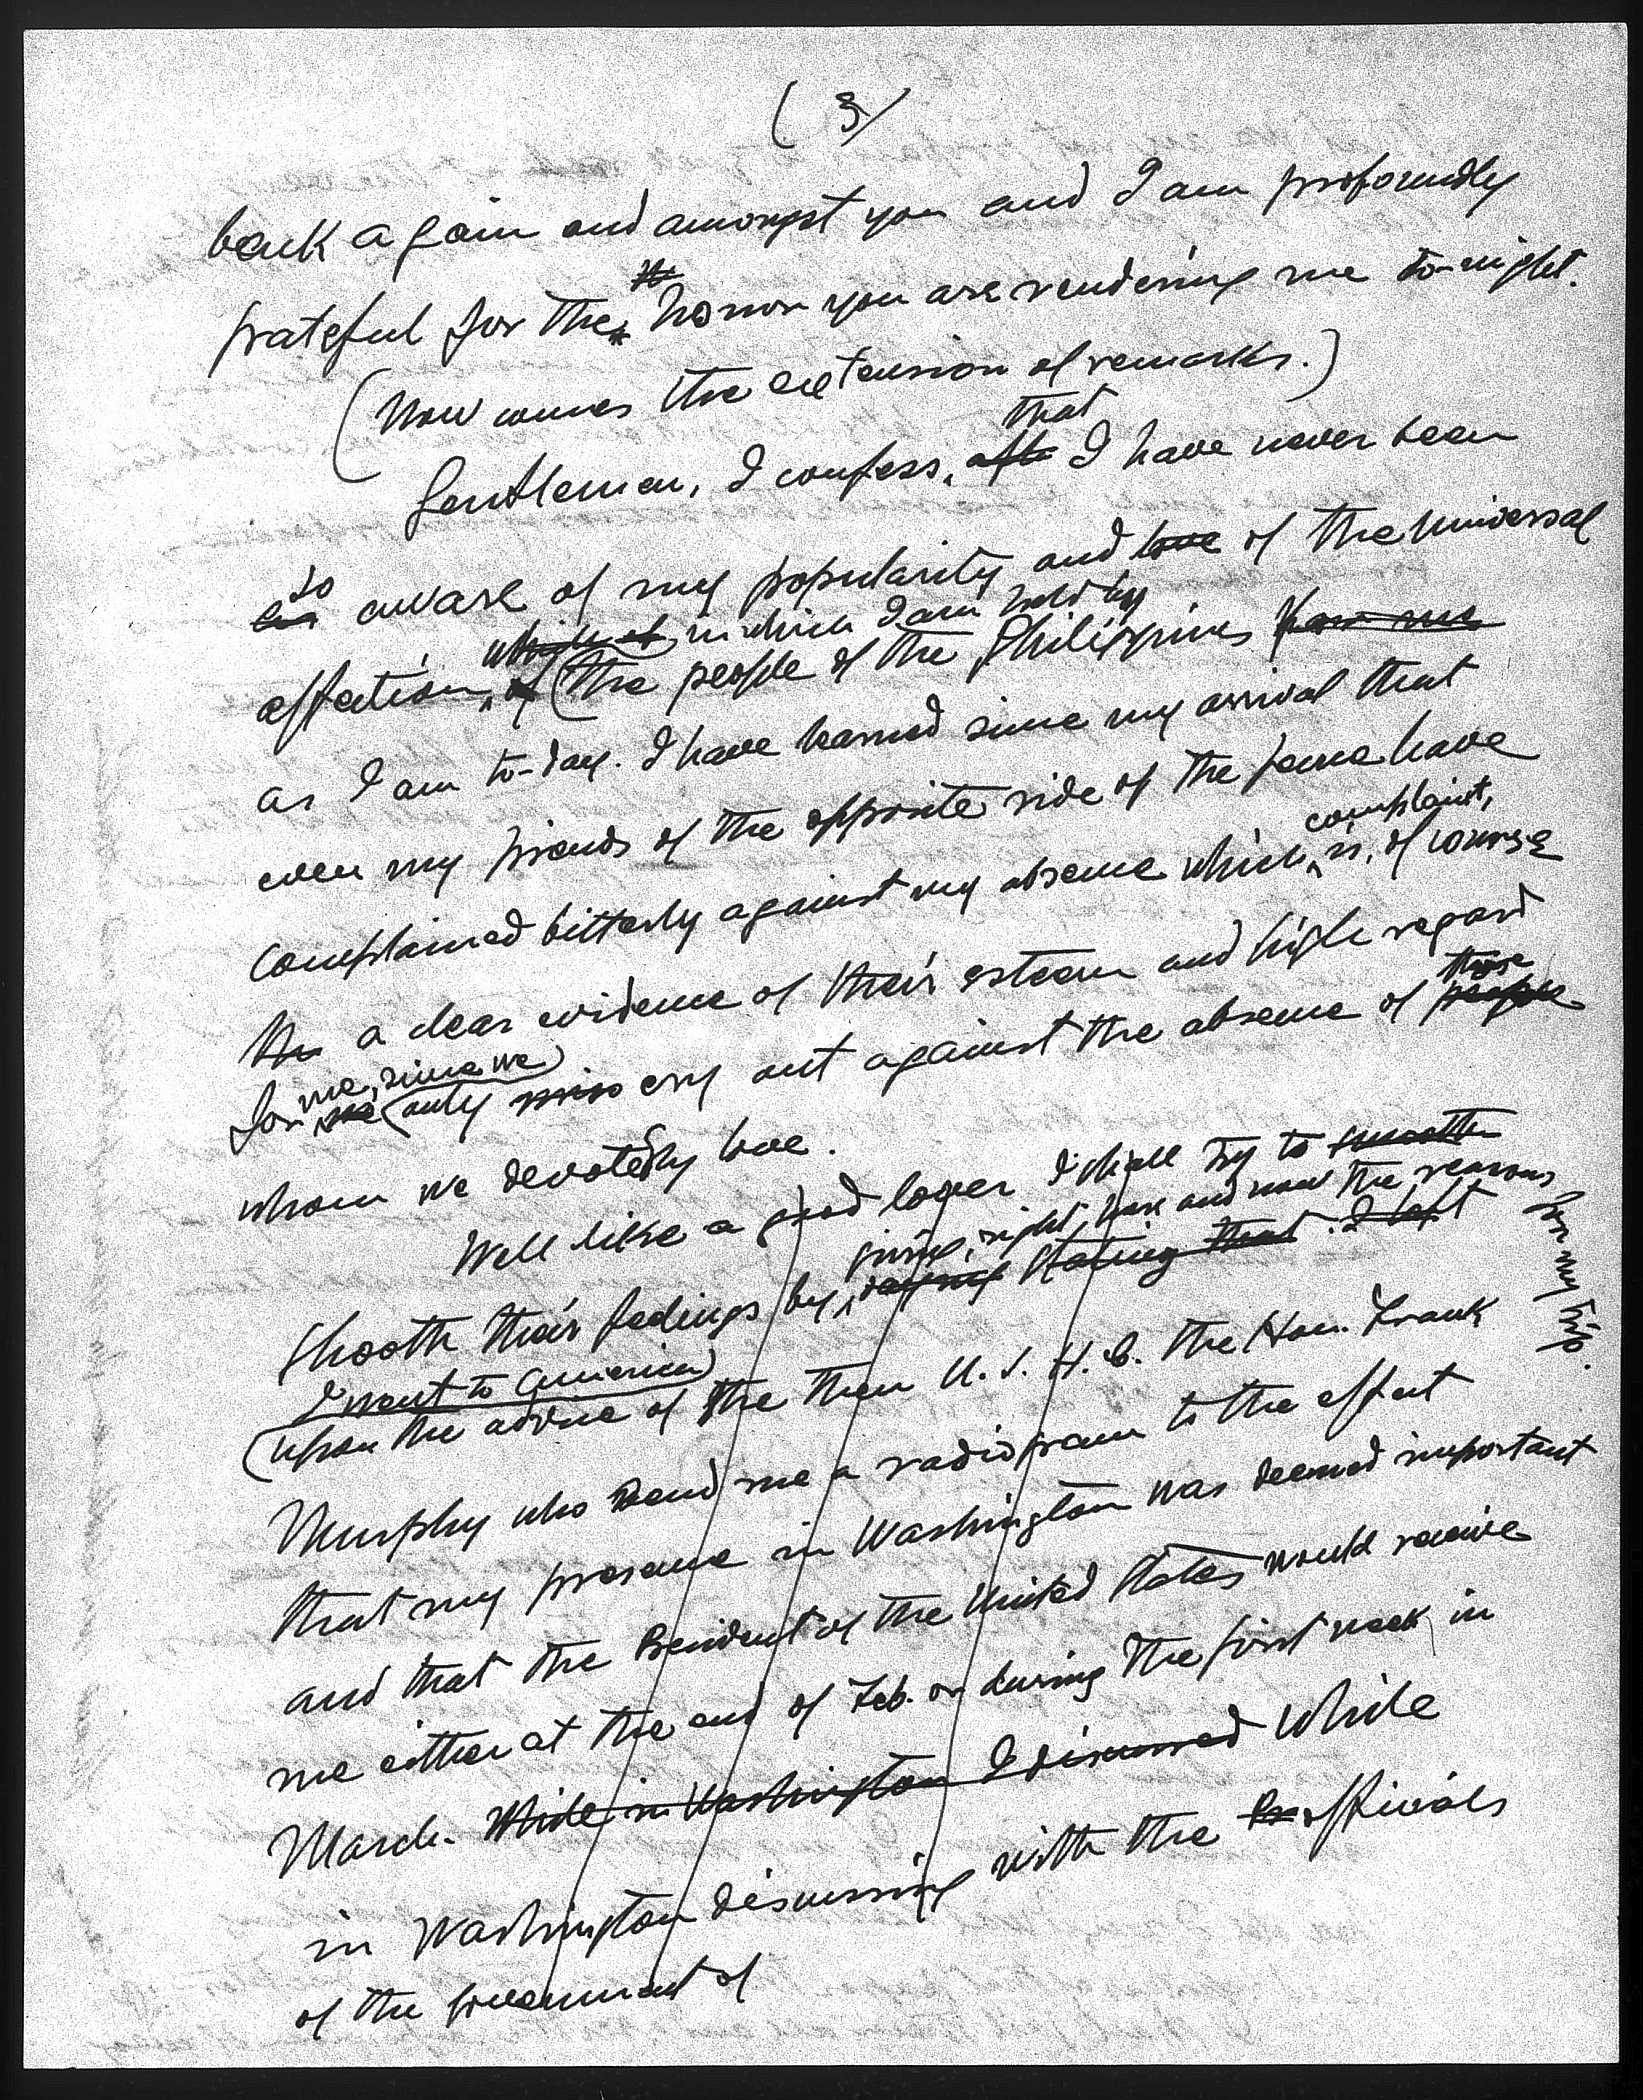 ( 3 )
back again and amongst you and I am profoundly
grateful for the honor you are rendering me to-night.
(Now comes the extension of remarks.)
that
Gentlemen, I confess, I have never been
so
aware of my popularity and love of the universal
which in which I am held by
affection, of (the people of the Philippines for me
as I am to-day. I have learned since my arrival that
even my friends of the opposite side of the fence have
complaint,
complained bitterly against my absence which, is, of course
a clear evidence of their esteem and high regard
those
me, since we
for me (only miss cry out against the absence of people
whom we devotedly love.
Well like a good lover I shall try to smooth
giving, right, here and now the reasons for my trip.
shooth their feelings by, saying stating that I left
I went to America)
(upon the advice of the then U. S. H. C. the Hon. Frank
Murphy who send me a radiogram to the effect
that my presence in Washington was deemed important
and that the President of the United States would receive
me either at the end of Feb. or during the first week in
March. While in Washington I discussed While
in Washington discussing with the officials
of the government of